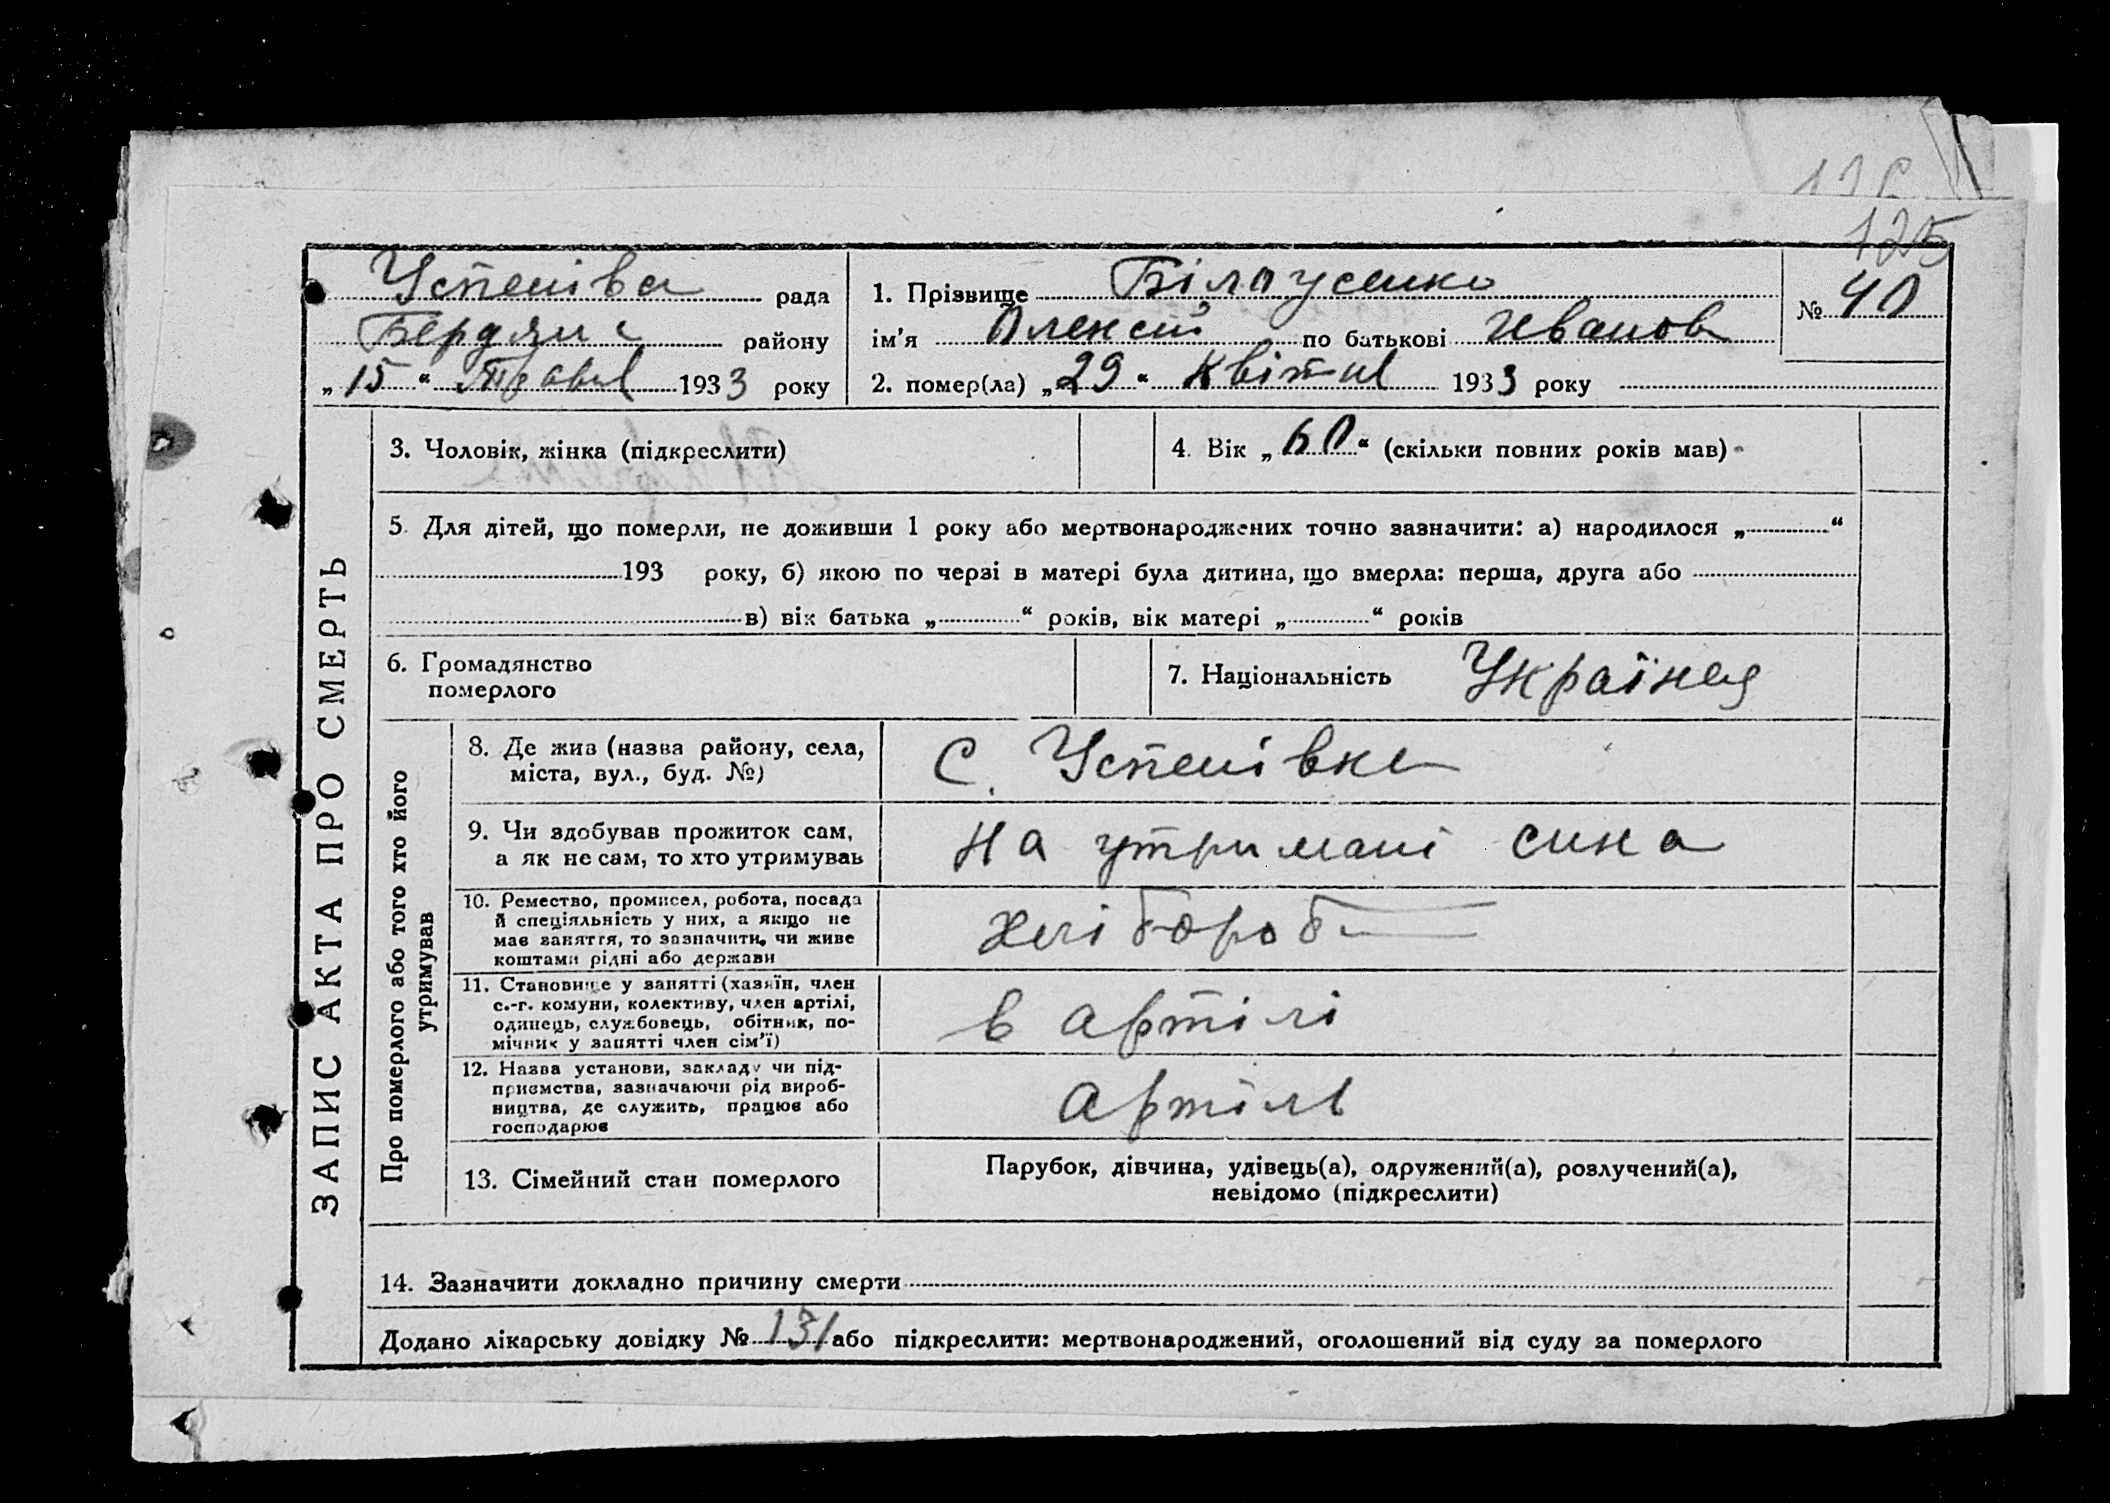 125
Успеніва рада
Бердян район​у
„15“ Травн 1933 року
1. Прізвище Білоусенко
ім'я Олексій по батькові Иванов
№ 40
2. помер(ла) „29“ Квітня 1933 року
ЗАПИС АКТА ПРО СМЕРТЬ
3. Чоловік, жінка (підкреслити)
4. Вік „60“ (скільки повних років мав)
5. Для дітей, що померли, не доживши 1 року або мертвонароджених точно зазначити: а) народилося „ “
193 року, б) якою по черзі в матері була дитина, що вмерла: перша, друга або
в) вік батька „ “ років, вік матері „ “ років
6. Громадянство
померлого
7. Національність Українец
Про померлого або того хто його
утримував
8. Де жив (назва району, села,
міста, вул., буд. №)
с. Успенівка
9. Чи здобував прожиток сам,
а як не сам, то хто утримував
На утримані сина
10. Ремество, промисел, робота, посада
й спеціяльність у них, а якщо не
має заняття, то зазначити, чи живе
коштами рідні або держави
Хлібороб
11. Становище у занятті (хазяїн, член
с.-г. комуни, колективу, член артілі,
одинець, службовець, обітник, по-
мічник у занятті член сім'ї)
в артілі
12. Назва установи, закладу чи під-
приємства, зазначаючи рід вироб-
ництва, де служить, працює або
господарює
Артіль
13. Сімейний стан померлого
Парубок, дівчина, удівець(а), одружений(а), розлучений(а),
невідомо (підкреслити)
14. Зазначити докладно причину смерти
Додано лікарську довідку № 131 або підкреслити: мертвонароджений, оголошений від суду за померлого